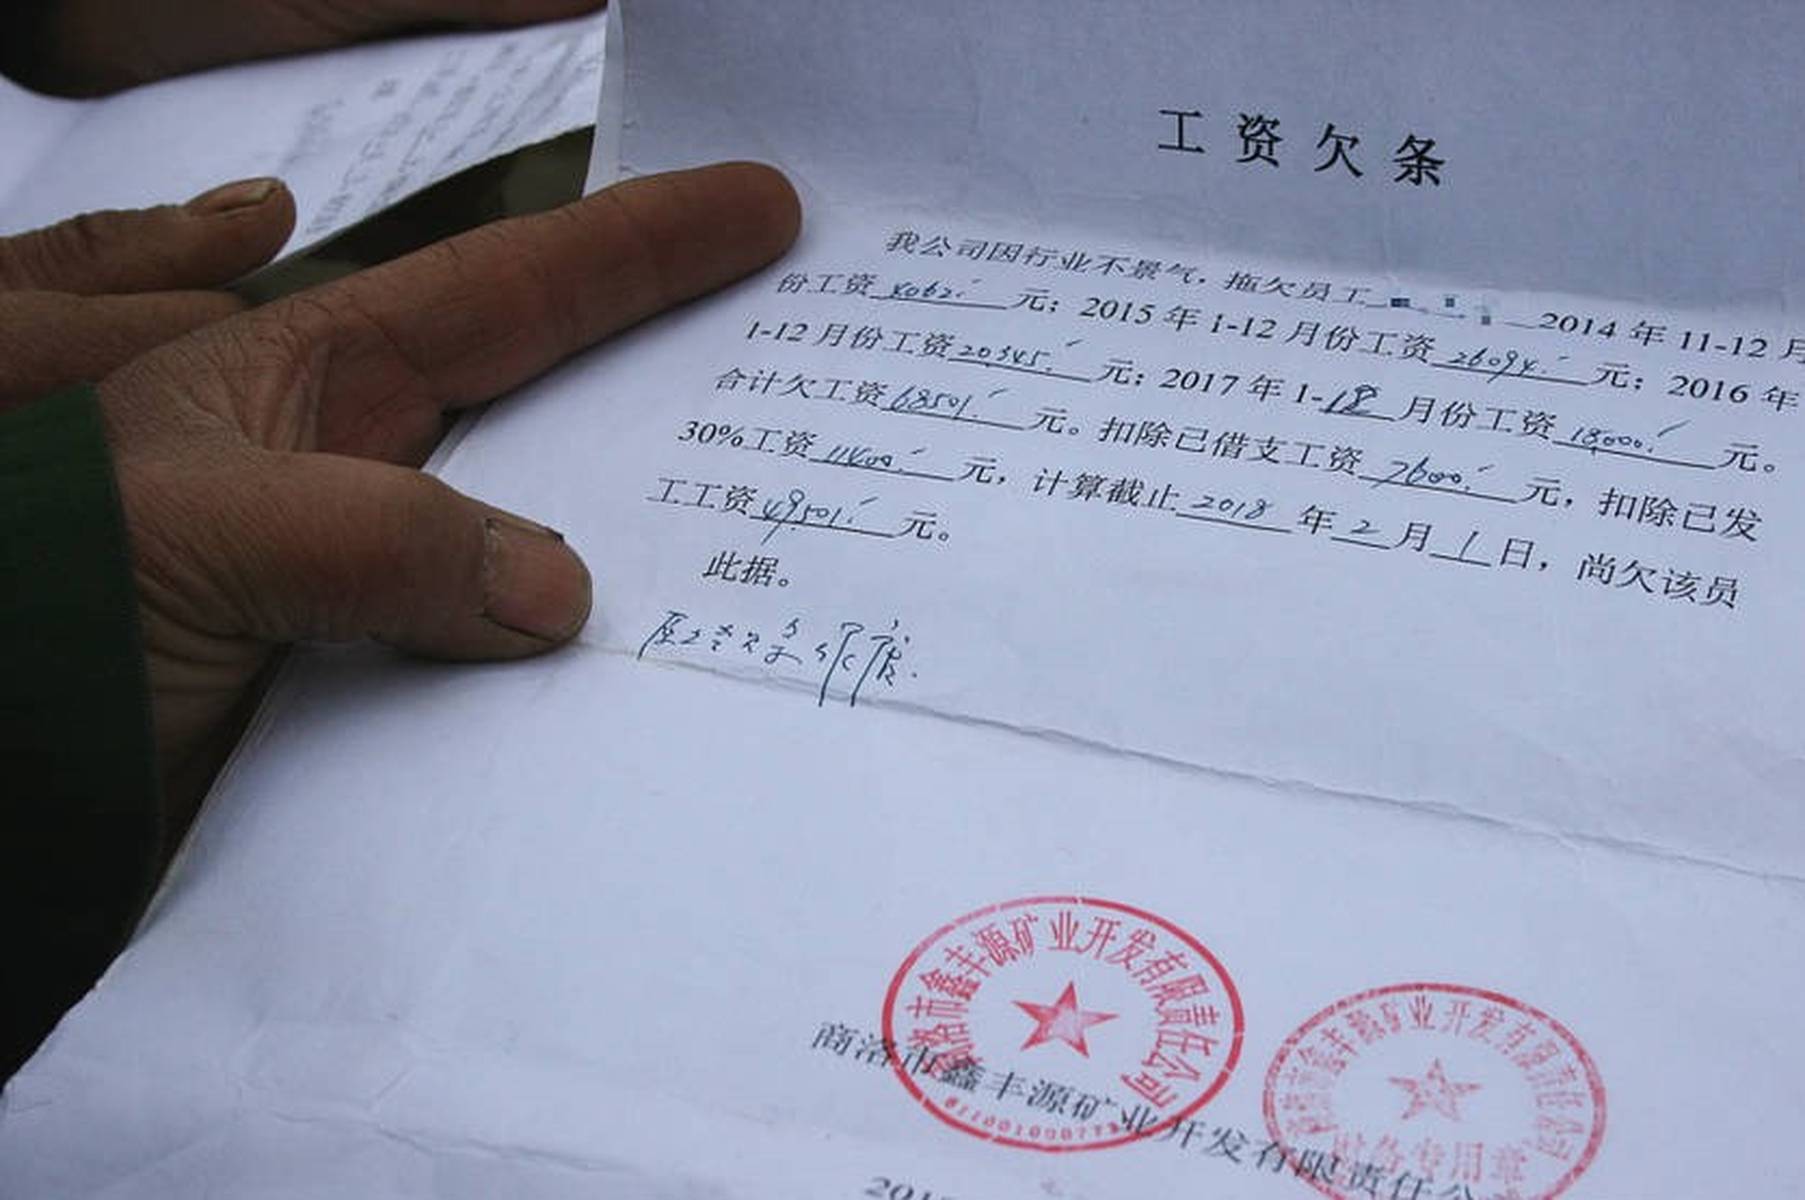 工资欠条
我公司因行业不景气，拖欠员工 2014 年 11-12 月
份工资 4062. 元；2015 年 1-12 月份工资 26094. 元；2016 年
1-12 月份工资 20345. 元；2017 年 1-12 月份工资 18000. 元。
合计欠工资 68501. 元。扣除已借支工资 7600. 元，扣除已发
30%工资 11400. 元，计算截止 2018 年 2 月 1 日，尚欠该员
工工资 49501. 元。
此据。
商洛市鑫丰源矿业开发有限责任公司
商洛市鑫丰源矿业开发有限责任公司
财务专用章
商洛市鑫丰源矿业开发有限责任公